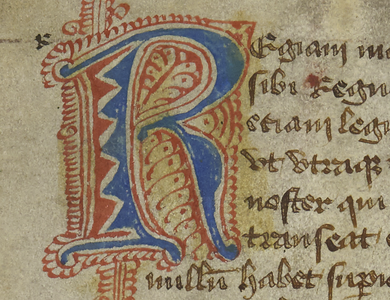 R Egiam m
sibi Regn
etiam legi
vt vtraq
noster qui
transeat
nullū habet sup